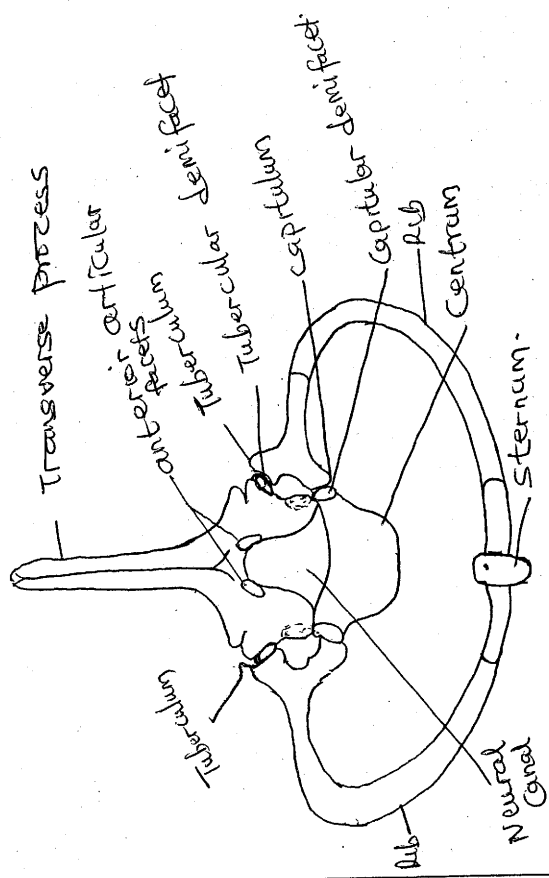 Transverse process
anterior articular
facets
Tuberculum
Tubercular demifacet
capitulum
Capitular demifacet.
Rib
Centrum
Sternum.
Tuberculum
Neural
Canal
Rib